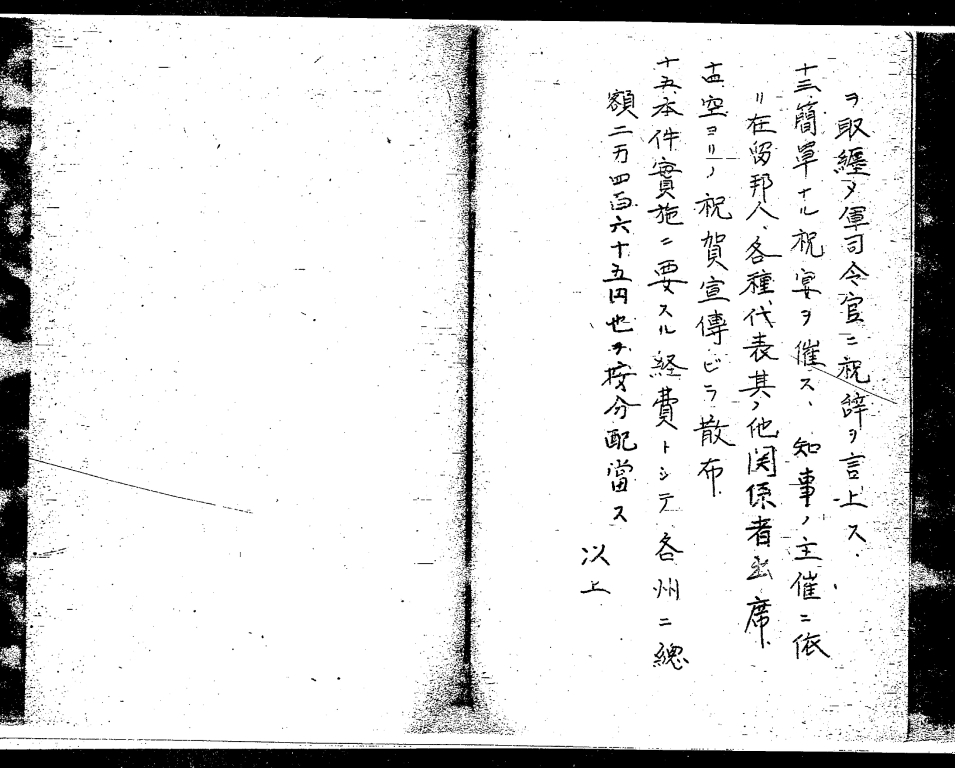 ヲ取纒メ軍司令官ニ祝辞ヲ言上ス.
十三、簡單ナル祝宴ヲ催ス、知事ノ主催ニ依
リ在留邦人、各種代表其ノ他関係者出席.
十四、空ヨリノ祝賀宣傳ビラ散布.
十五、本件實施ニ要スル経費トシテ各州ニ總
額二万四百六十五円也ヲ按分配當ス
以上